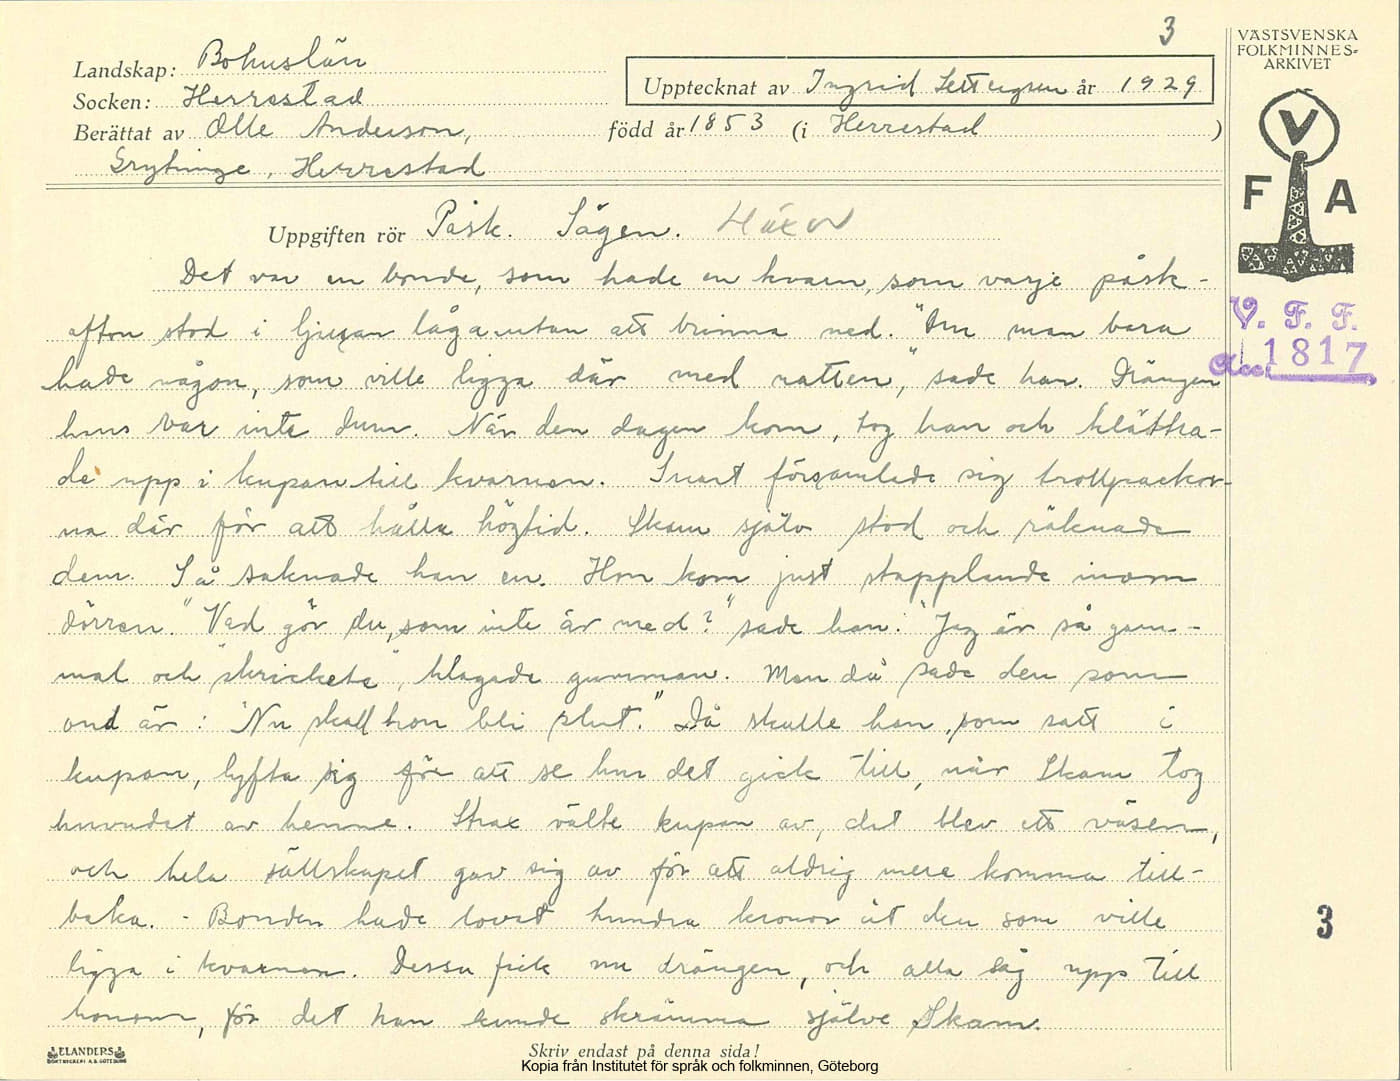 3
VÄSTSVENSKA
FOLKMINNES-
ARKIVET
Landskap: Bohuslän
Upptecknat av Ingrid år 1929
Socken: Herrestad
Berättat av Olle Anderson, född år 1853 (i Herrestad )
Herrestad
V
F A
Uppgiften rör Påsk. Sägen. Häxor
Det var en bonde, som hade en kvarn, som varje påsk-
afton stod i ljusan låga utan att brinna ned. "Om man bara
hade någon, som ville ligga där med natten", sade han. Drängen
hans var inte dum. När den dagen kom, tog han och klättra-
de upp i kupan till kvarnen. Snart församlade sig trollpackor-
na där för att hålla högtid. Skam själv stod och räknade
dem. Så saknade han en. Hon kom just stapplande inom
dörren. "Vad gör du, som inte är med?" sade han. "Jag är så gam-
mal och "skrickete", klagade gumman. Men då sade den som
ond är: "Nu skall hon bli slut." Då skulle han, som satt i
kupan, lyfta sig för att se hur det gick till, när Skam tog
huvudet av henne. Strax välte kupan av, det blev ett väsen,
och hela sällskapet gav sig av för att aldrig mere komma till-
baka. - Bonden hade lovat hundra kronor åt den som ville
ligga i kvarnen. Dessa fick nu drängen, och alla såg upp till
honom, för det han kunde skrämma själve Skam.
V. F. F.
Acc. 1817
3
ELANDERS
BOKTRYCKERI A.B. GÖTEBORG
Skriv endast på denna sida!
Kopia från Institutet för språk och folkminnen, Göteborg